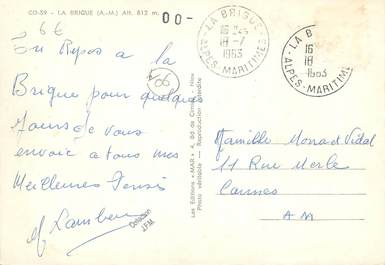 CO-59 - LA BRIGUE (A.-M.) Alt. 812 m.
6€
00-
LA BRIGUE
16
18 - 7
1963
ALPES-MARITIMES
LA B
16
18
1963
ALPES-MARITIME
06
En Repos a la
Brigue pour quelques
Jours Je vous
envoie a tous mes
Meilleures
Les Editions « MAR » 4, Bd de - Nice
Photo véritable — Reproduction interdite
Collection
J.F.M.
Famille Monod Vidal
11 Rue Merle
Cannes
AM